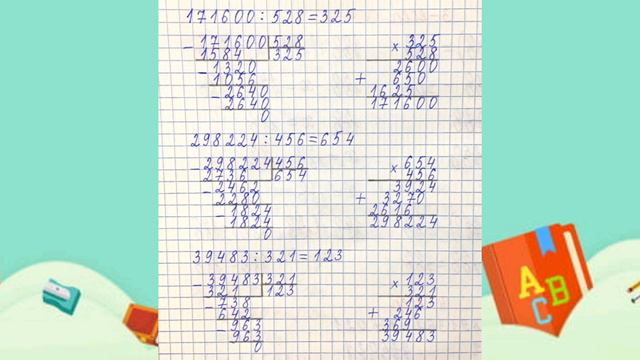 171600:528=325
- 171600 528
1584 325
- 1320
1056
- 2640
2640
0
× 325
528
2600
+ 650
1625
171600
298224:456=654
- 298224 456
2736 654
- 2462
2280
- 1824
1824
0
× 654
456
3924
+ 3270
2616
298224
39483:321=123
- 39483 321
321 123
- 738
642
- 963
963
0
× 123
321
123
+ 246
369
39483
A
B
C